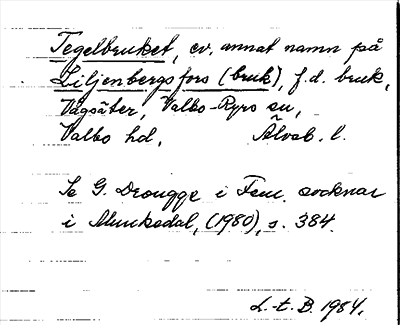 Tegelbruket, ev. annat namn på
Liljenbergsfors (bruk), f.d. bruk,
Vågsäter, Valbo-Ryrs sn,
Valbo hd, Älvsb. l.
Se G. Drougge i Fem socknar
i Munkedal, (1980), s. 384.
L.-t. B. 1984.